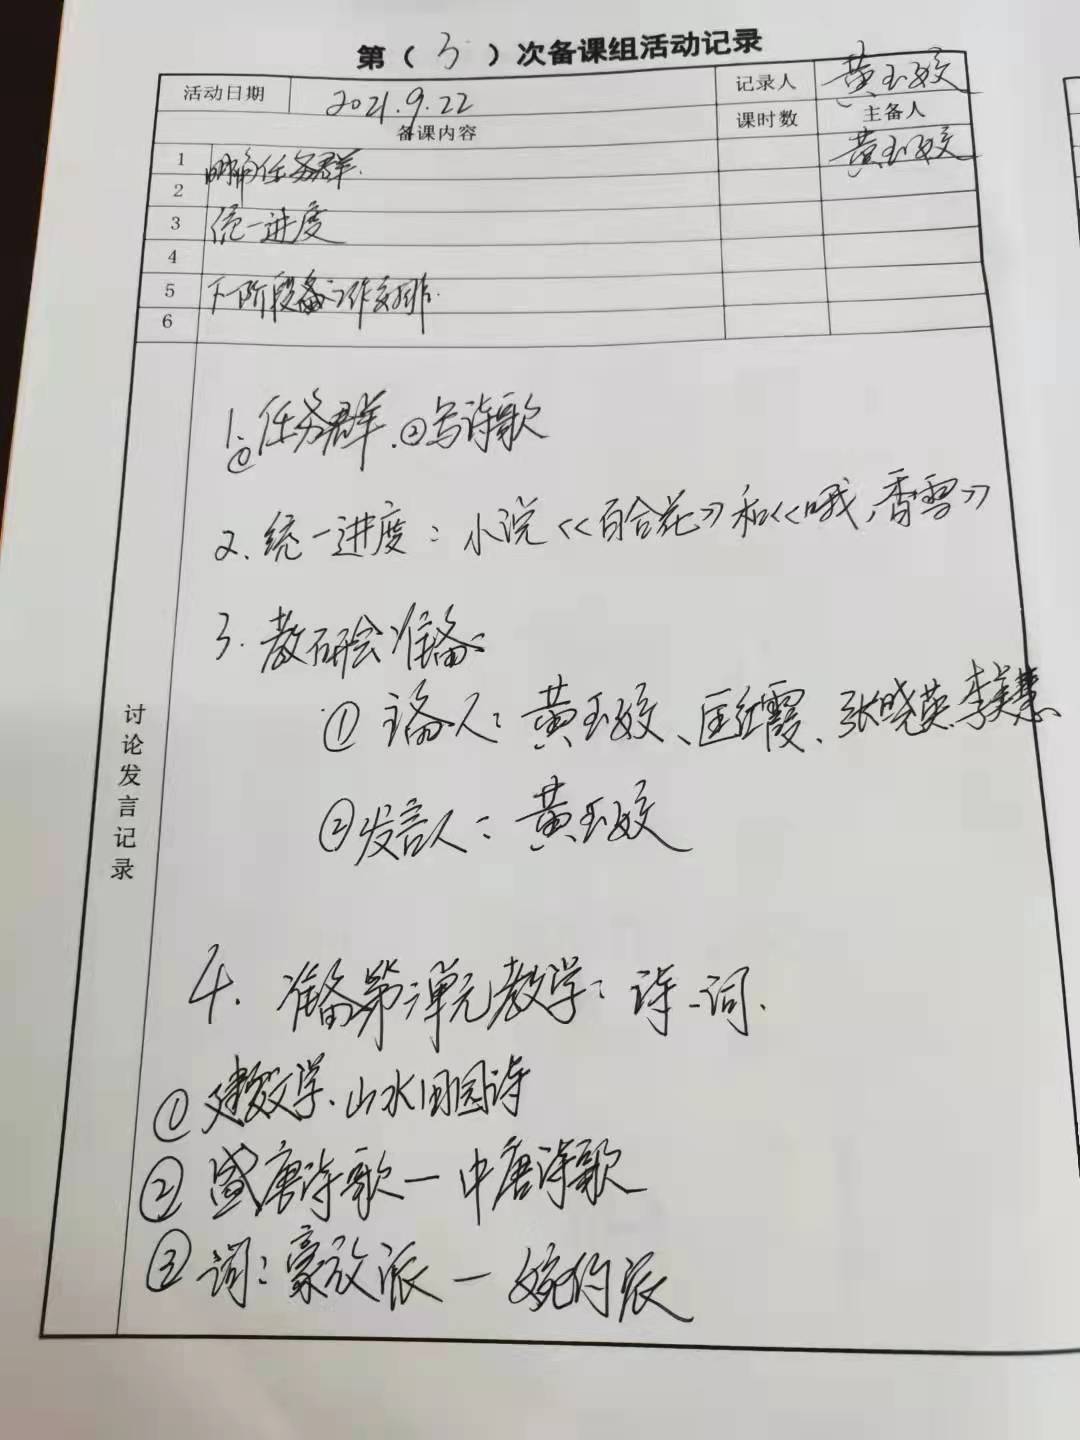 第（3）次备课组活动记录
活动日期 2021.9.22 记录人 黄玉姣
备课内容 课时数 主备人
1 明确任务群. 黄玉姣
2
3 统一进度
4
5 下一阶段备课工作安排.
6
讨论发言记录
1. ①任务群.②写诗歌
2. 统一进度：小说《百合花》和《哦，香雪》
3. 教研会准备：
① 主备人：黄玉姣、匡红霞、张晓英、李美慧
②发言人：黄玉姣
4. 准备第三单元教学：诗-词.
① 建安文学、山水田园诗
② 盛唐诗歌—中唐诗歌
③ 词：豪放派—婉约派